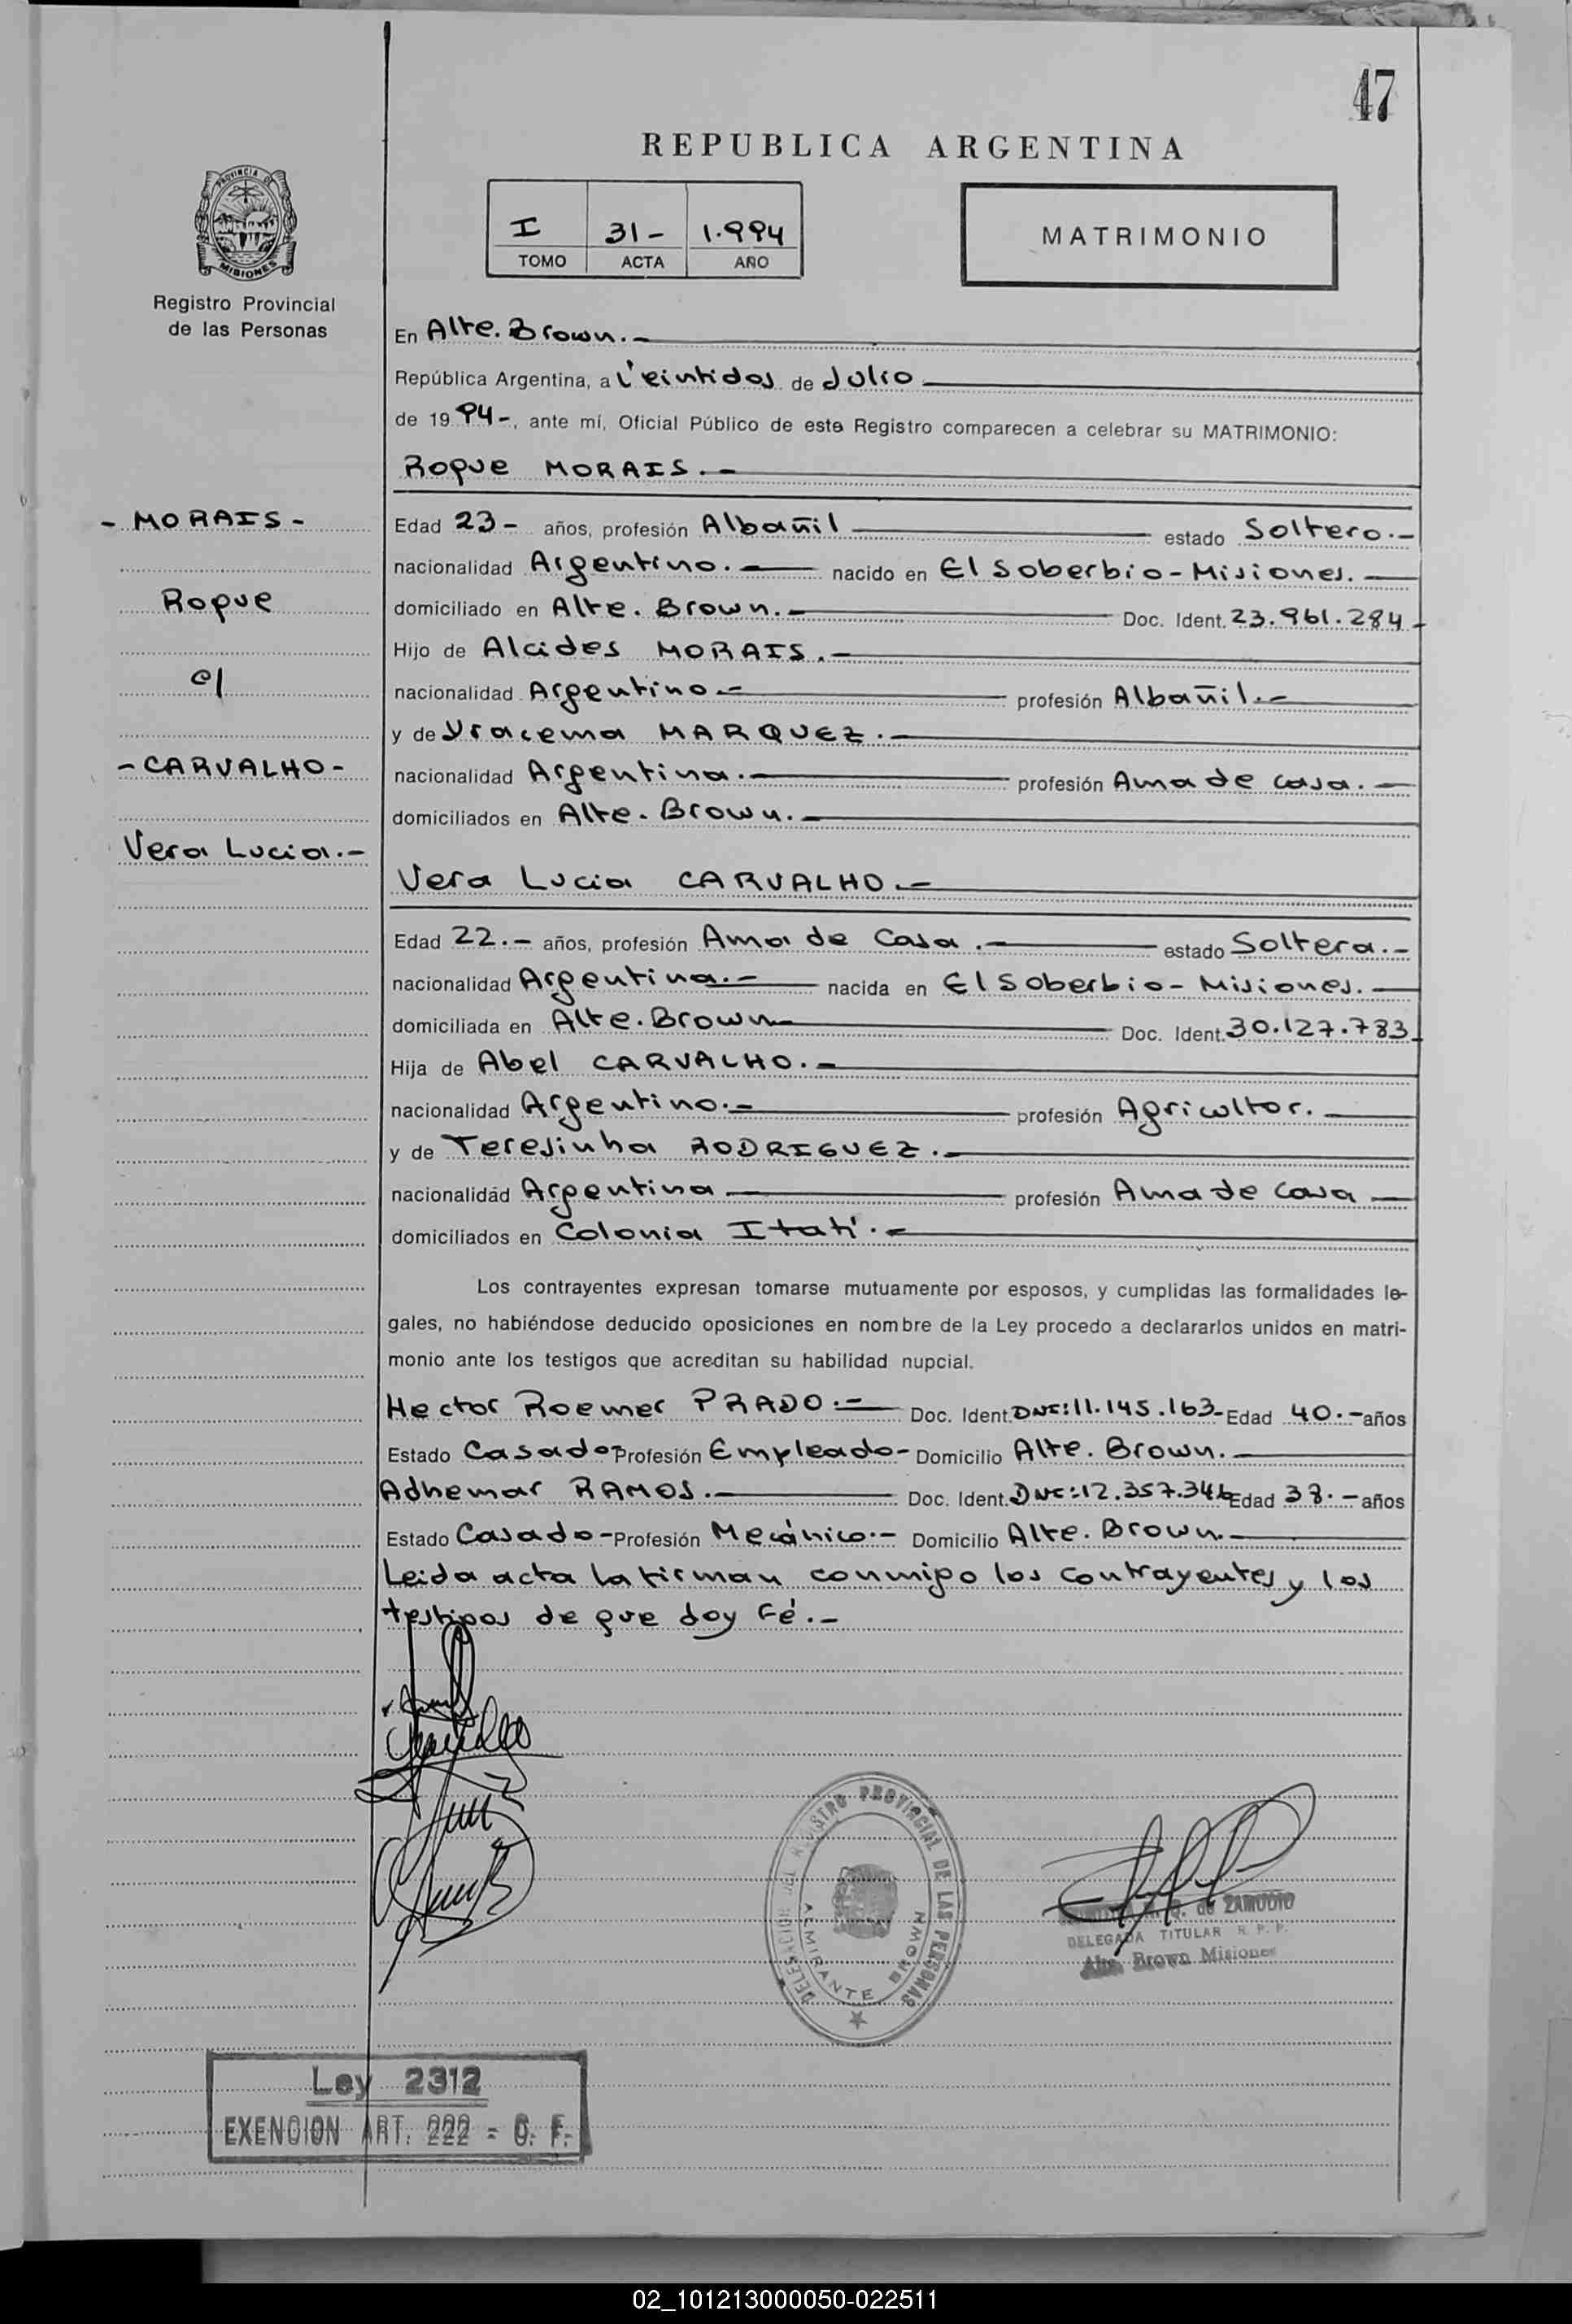 47
REPUBLICA ARGENTINA
PROVINCIA DE
MISIONES
Registro Provincial
de las Personas
I 31- 1.994
TOMO ACTA AÑO
MATRIMONIO
En Alte. Brown.-
República Argentina, a Veintidos de Julio
de 1994-, ante mí, Oficial Público de este Registro comparecen a celebrar su MATRIMONIO:
Roque MORAIS.-
- MORAIS -
Roque
c/
- CARVALHO -
Vera Lucia.-
Edad 23- años, profesión Albañil estado Soltero.-
nacionalidad Argentino.- nacido en El Soberbio-Misiones.-
domiciliado en Alte. Brown.- Doc. Ident. 23.961.284-
Hijo de Alcides MORAIS.-
nacionalidad Argentino.- profesión Albañil.-
y de Yracema MARQUEZ.-
nacionalidad Argentina.- profesión Ama de casa.-
domiciliados en Alte. Brown.-
Vera Lucia CARVALHO.-
Edad 22.- años, profesión Ama de Casa.- estado Soltera.-
nacionalidad Argentina.- nacida en El Soberbio-Misiones.-
domiciliada en Alte. Brown- Doc. Ident. 30.127.783-
Hija de Abel CARVALHO.-
nacionalidad Argentino.- profesión Agricultor.
y de Teresinha RODRIGUEZ.-
nacionalidad Argentina profesión Ama de Casa
domiciliados en Colonia Itatí.-
Los contrayentes expresan tomarse mutuamente por esposos, y cumplidas las formalidades le-
gales, no habiéndose deducido oposiciones en nombre de la Ley procedo a declararlos unidos en matri-
monio ante los testigos que acreditan su habilidad nupcial.
Hector Roemer PRADO.- Doc. Ident. DNI:11.145.163- Edad 40.- años
Estado Casado- Profesión Empleado- Domicilio Alte. Brown.-
Adhemar RAMOS.- Doc. Ident. DNI:12.357.346 Edad 38.- años
Estado Casado- Profesión Mecánico.- Domicilio Alte. Brown.-
Leida acta la firman conmigo los contrayentes y los
testigos de que doy Fé.-
DELEGACION DEL REGISTRO PROVINCIAL DE LAS PERSONAS
ALMIRANTE BROWN
de ZAMUDIO
DELEGADA TITULAR R. P. P.
Alte. Brown Misiones
Ley 2312
EXENCION ART. 222 = C. F.
02_101213000050-022511